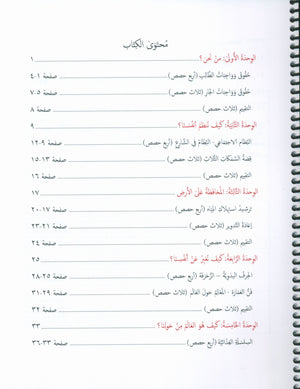 مُحتَوى الكِتاب
الوِحدَةُ الأُولى: مَنْ نَحنُ؟ ١
حُقوقُ وَوَاجِباتُ الطّالِبِ (أربع حصص) صفحة ١-٤
حُقوقُ وَوَاجِباتُ الجارِ (ثلاث حصص) صفحة ٥-٧
التقييم (ثلاث حصص) صفحة ٨
الوِحدَةُ الثّانِيَةُ: كَيفَ نُنَظِّمُ أنفُسَنا؟ ٩
النِّظامُ الاجتِماعي- النِّظامُ في الشّارِعِ (أربع حصص) صفحة ٩-١٢
قِصَّةُ السَّمَكاتِ الثَّلاث (ثلاث حصص) صفحة ١٣-١٥
التقييم (ثلاث حصص) صفحة ١٦
الوِحدَةُ الثّالِثَةُ: المُحافَظَةُ عَلى الأرضِ ١٧
تَرشيدُ استِهلاكِ المِياه (أربع حصص) صفحة ١٧-٢٠
إعادَةُ التَّدوير (ثلاث حصص) صفحة ٢١-٢٣
التقييم (ثلاث حصص) صفحة ٢٤
الوِحدَةُ الرّابِعَةُ: كَيفَ نُعَبِّرُ عَنْ أنفُسِنا؟ ٢٥
الحِرَفُ اليَدَوِيَّةُ – الزَّخرَفَة (أربع حصص) صفحة ٢٥-٢٨
فَنُّ العِمارَة - المَعالِمُ حَولَ العالَم (ثلاث حصص) صفحة ٢٩-٣١
التقييم (ثلاث حصص) صفحة ٣٢
الوِحدَةُ الخامِسَةُ: كَيفَ هُوَ العالَمُ مِنْ حَولِنا؟ ٣٣
السِّلسِلَةُ الغِذائِيَّة (أربع حصص) صفحة ٣٣-٣٦